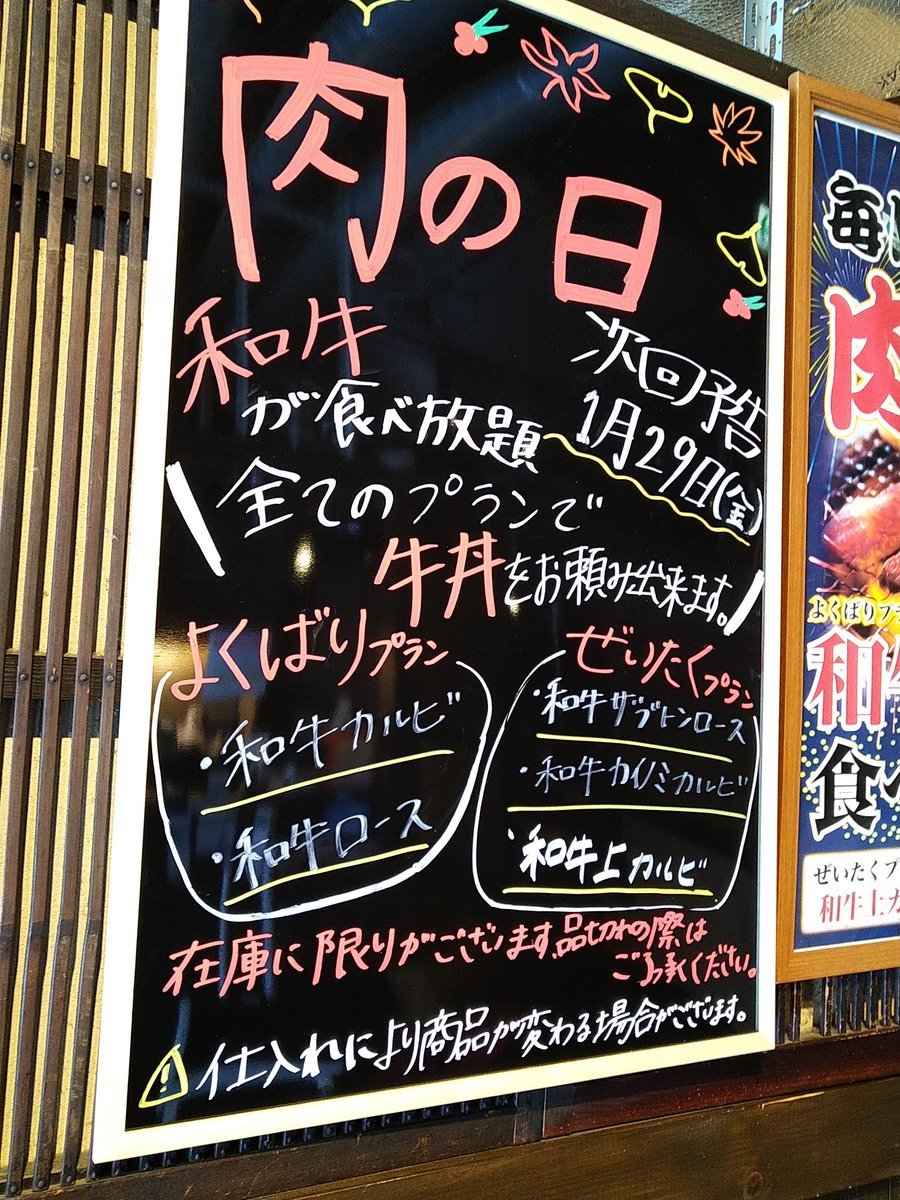 肉の日
和牛
が食べ放題
次回予告
1月29日(金)
全てのプランで
牛丼をお頼み出来ます。
よくばりプラン
・和牛カルビ
・和牛ロース
ぜいたくプラン
・和牛ザブトンロース
・和牛カイノミカルビ
・和牛上カルビ
在庫に限りがございます、品切れの際は
ご了承ください。
仕入れにより商品が変わる場合がございます。
毎
肉
よくばりプラ
和牛
食べ
ぜいたくプ
和牛上カ